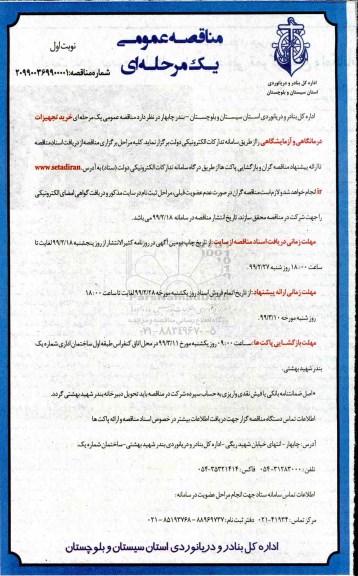 مناقصه عمومی
یک مرحله‌ای
نوبت اول
شماره مناقصه: ۲۰۹۹۰۰۳۶۹۹۰۰۰۰۱
اداره کل بنادر و دریانوردی
استان سیستان و بلوچستان
اداره کل بنادر و دریانوردی استان سیستان و بلوچستان -بندر چابهار در نظر دارد مناقصه عمومی یک مرحله ای خرید تجهیزات
درمانگاهی و آزمایشگاهی را از طریق سامانه تدارکات الکترونیکی دولت برگزار نماید. کلیه مراحل برگزاری مناقصه از دریافت اسناد مناقصه
تا ارائه پیشنهاد مناقصه گران و بازگشایی پاکت ها از طریق درگاه سامانه تدارکات الکترونیکی دولت (ستاد) به آدرس www.setadiran.
ir انجام خواهد شد و لازم است مناقصه گران در صورت عدم عضویت قبلی، مراحل ثبت نام در سایت مذکور و دریافت گواهی امضای الکترونیکی
را جهت شرکت در مناقصه محقق سازند. تاریخ انتشار مناقصه در سامانه ۹۹/۲/۱۸ می باشد.
مهلت زمانی دریافت اسناد مناقصه از سایت: از تاریخ چاپ دومین آگهی در روزنامه کثیر الانتشار از روز پنجشنبه ۹۹/۲/۱۸ لغایت تا
ساعت ۱۸:۰۰ روز شنبه ۹۹/۲/۲۷.
مهلت زمانی ارائه پیشنهاد: از تاریخ اتمام فروش اسناد روز یکشنبه مورخه ۹۹/۲/۲۸ لغایت تا ساعت ۱۸:۰۰
روز شنبه مورخه ۹۹/۳/۱۰.
مهلت بازگشایی پاکت ها: ساعت ۰۹:۰۰ روز یکشنبه مورخ ۹۹/۳/۱۱ در محل اتاق کنفراس طبقه اول ساختمان اداری شماره یک
بندر شهید بهشتی.
*اصل ضمانتنامه بانکی یا فیش نقدی واریزی به حساب سپرده شرکت در مناقصه باید تحویل دبیرخانه بندر شهید بهشتی گردد.
اطلاعات تماس دستگاه مناقصه گزار جهت دریافت اطلاعات بیشتر در خصوص اسناد مناقصه و ارائه پاکت ها
آدرس: چابهار - انتهای خیابان شهید ریگی -اداره کل بنادر و دریانوردی بندر شهید بهشتی-ساختمان شماره یک.
تلفن: ۳۱۲۸۳۰۰۰-۰۵۴ فاکس: ۳۵۳۲۱۴۱۴-۰۵۴
اطلاعات تماس سامانه ستاد جهت انجام مراحل عضویت در سامانه:
مرکز تماس: ۴۱۹۳۴-۰۲۱ دفتر ثبت نام: ۸۸۹۶۹۷۳۷ - ۸۵۱۹۳۷۶۸ - ۰۲۱
اداره کل بنادر و دریانوردی استان سیستان و بلوچستان